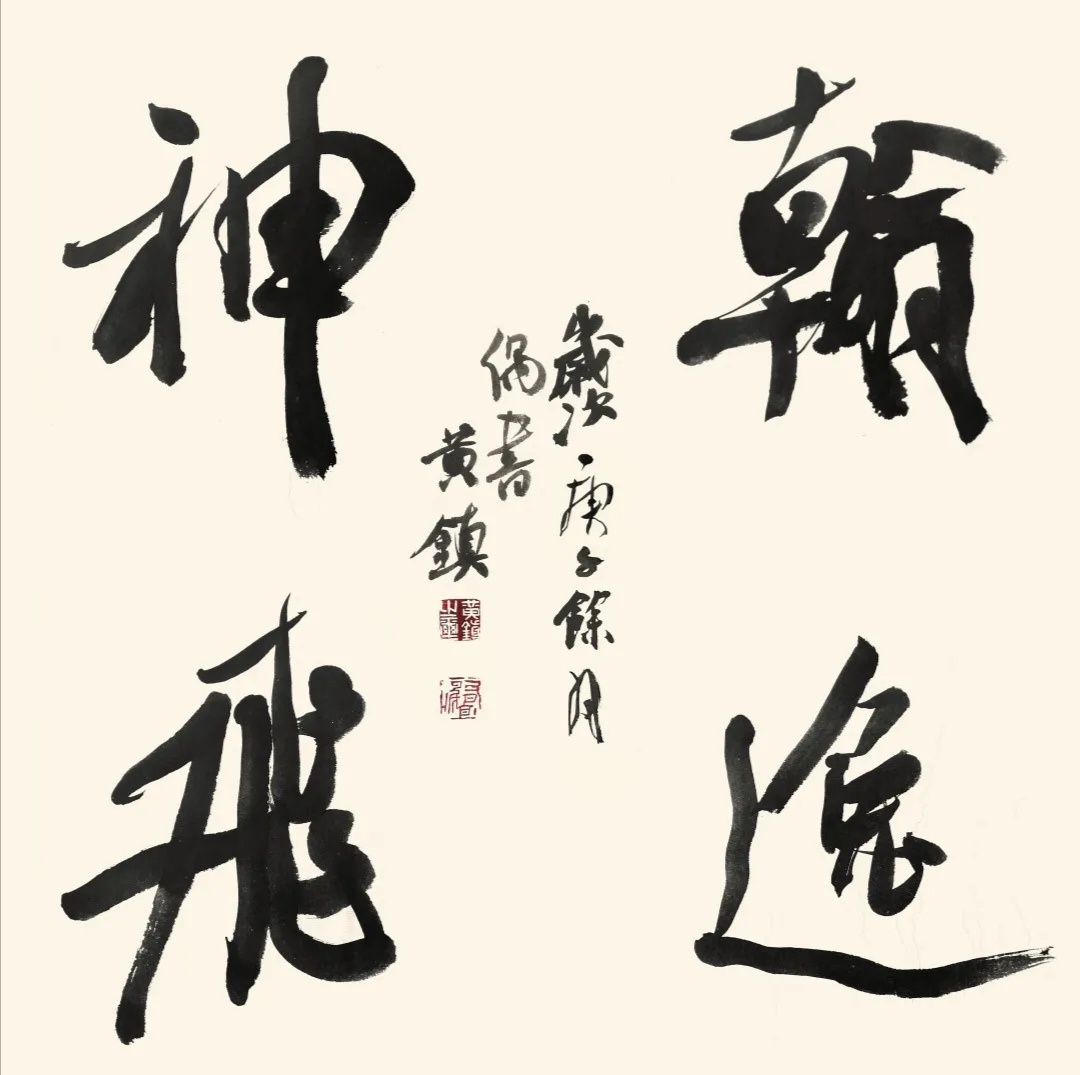 翰逸
神飛
歲次庚子餘月
偶書
黃鎮
黃鎮
之璽